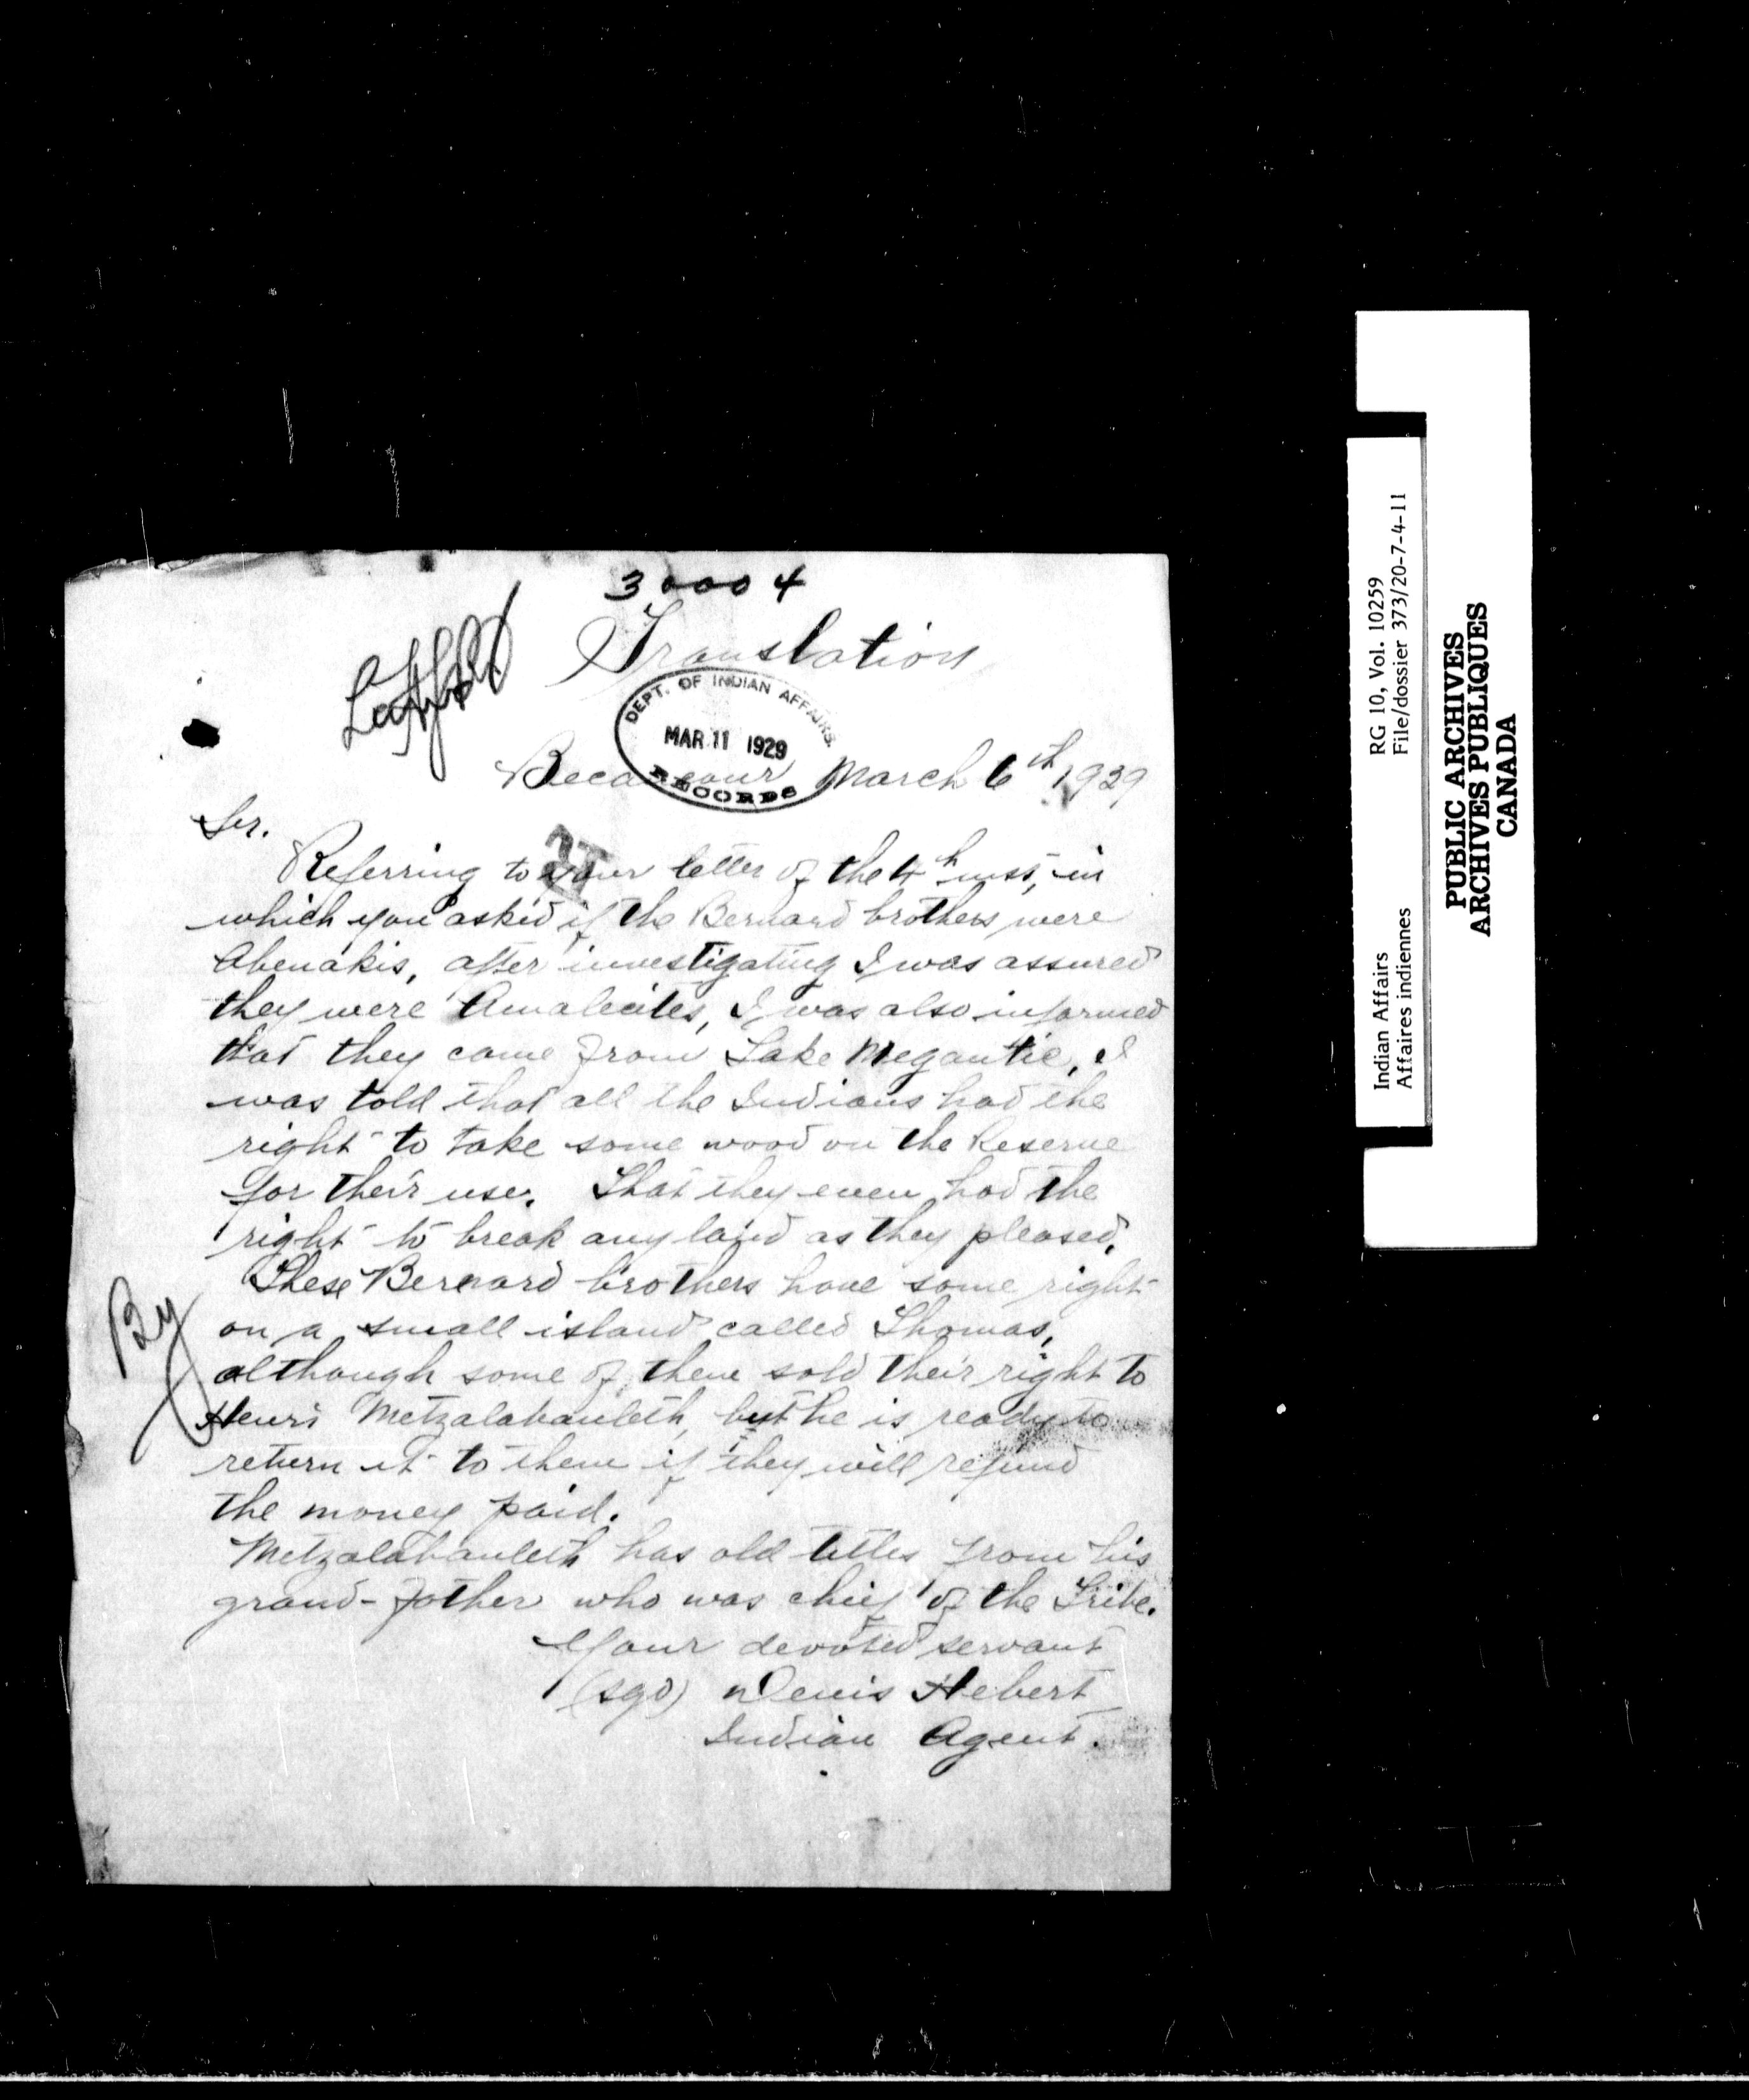 30004
Translation
DEPT. OF INDIAN AFFAIRS.
MAR 11 1929
RECORDS
Becancour March 6th 1929
Sir.
Referring to your letter of the 4th inst, in
which you asked if the Bernard brothers were
Abenakis, after investigating I was assured
they were Amalecites, I was also informed
that they came from Lake Megantic, I
was told that all the Indians had the
right to take some wood on the Reserve
for their use. That they even had the
right to break any land as they pleased.
These Bernard brothers have some right
on a small island called Thomas,
although some of them sold their right to
Henri Metzalabanleth, but he is ready to
return it to them if they will refund
the money paid.
Metzalabanleth has old titles from his
grand-father who was chief of the Tribe.
Your devoted servant
(sgd) Denis Hebert
Indian Agent.
By
Indian Affairs RG 10, Vol. 10259
Affaires indiennes File/dossier 373/20-7-4-11
PUBLIC ARCHIVES
ARCHIVES PUBLIQUES
CANADA